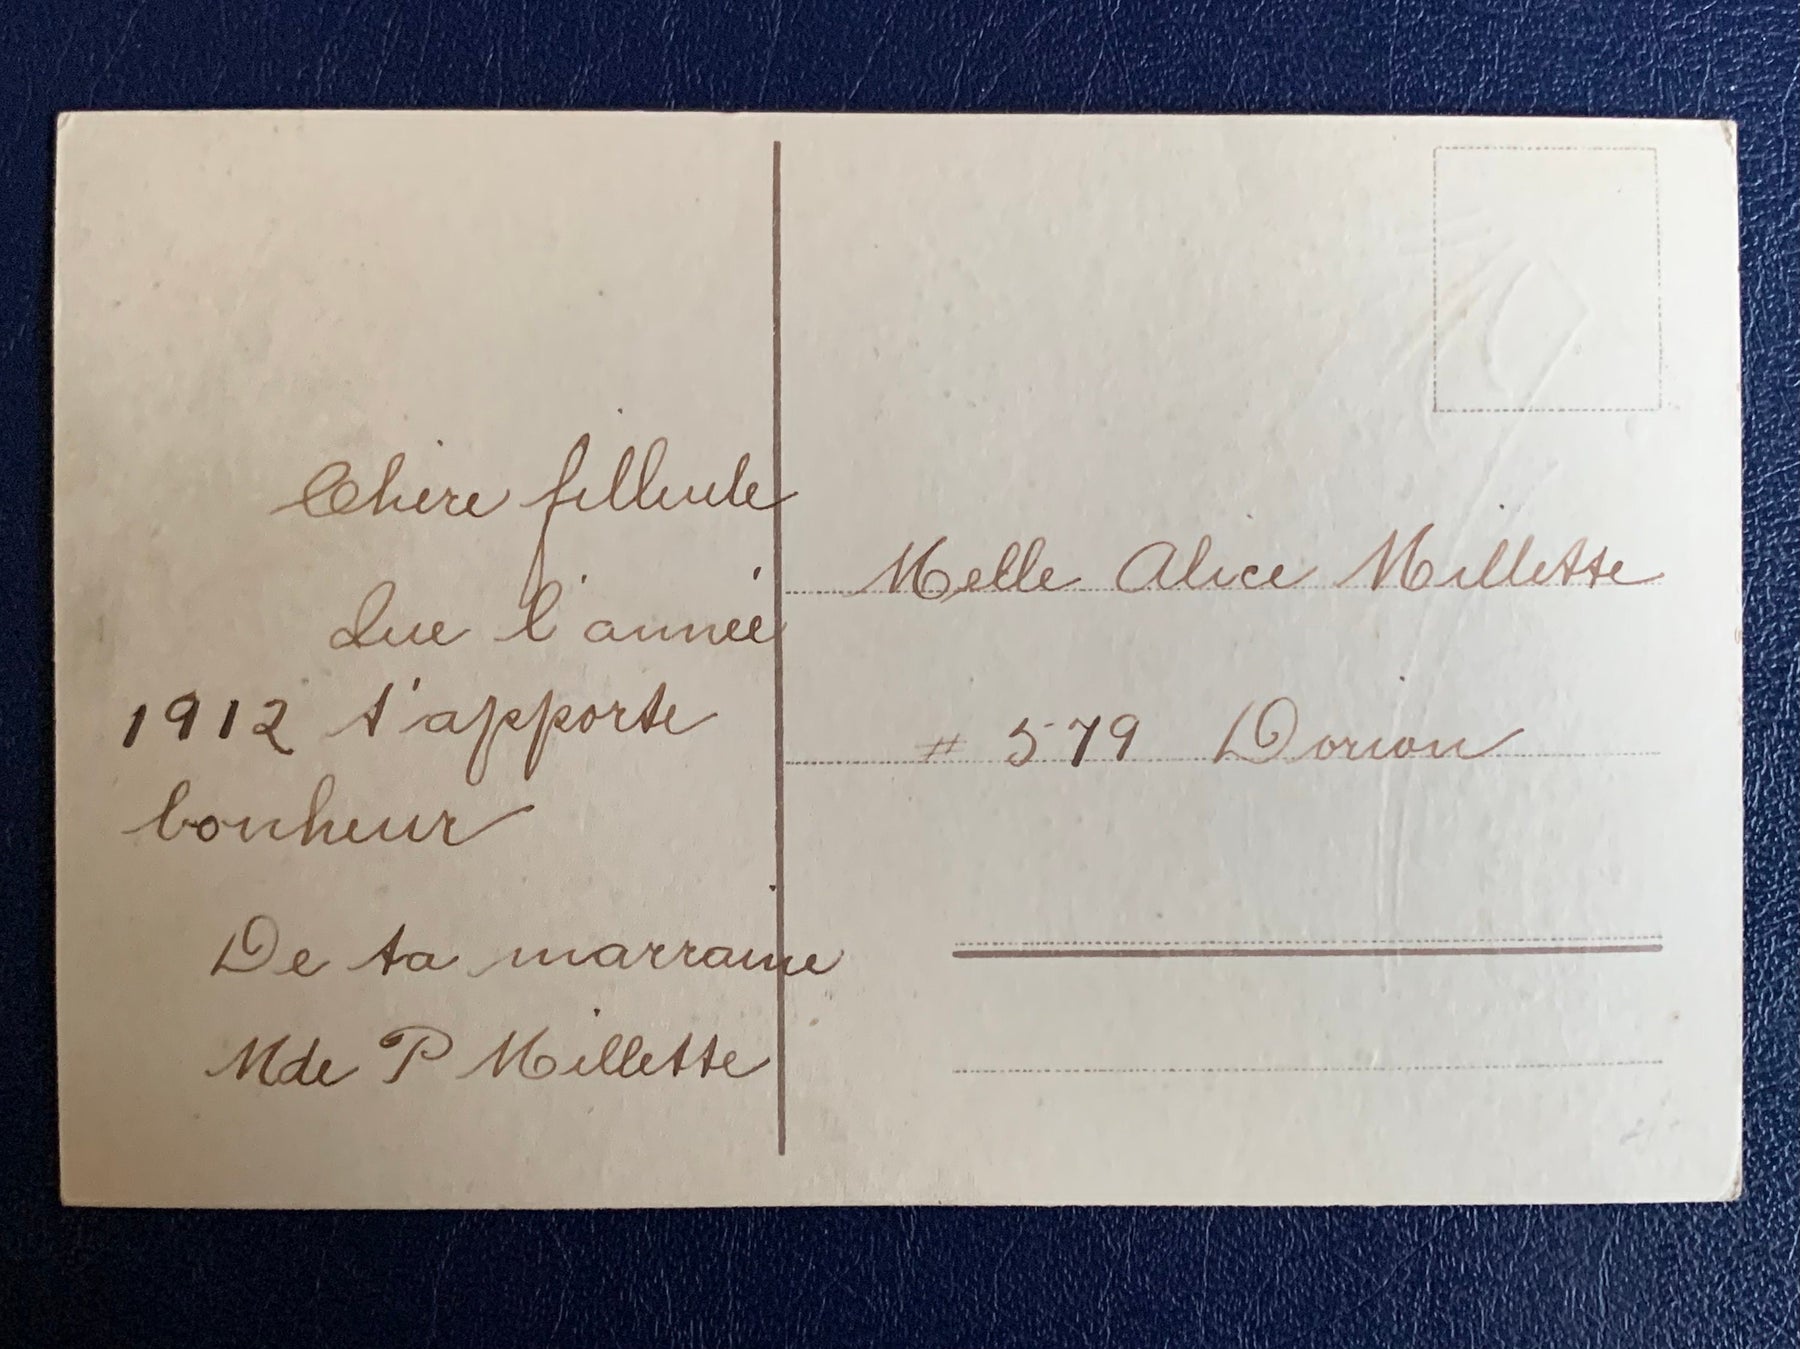 Chère filleule
Que l'année
1912 t'apporte
bonheur
De ta marraine
Mde P Millette
Melle Alice Millette
# 579 Dorion